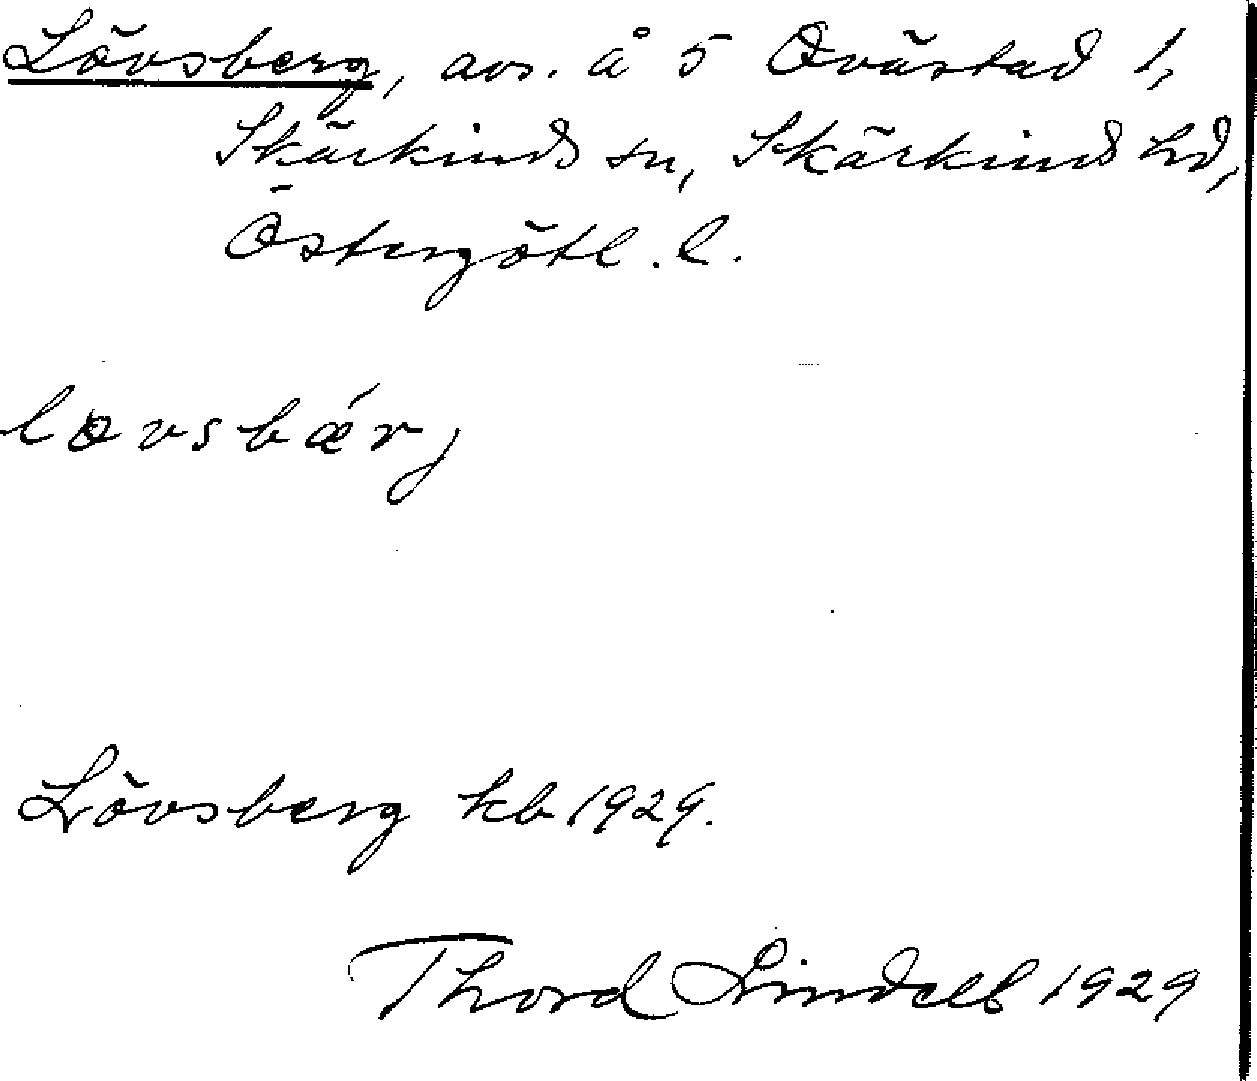 Lövsberg, avs. å 5 Ovästad 1,
Skärkinds sn, Skärkinds hd,
Östergötl. l.
lövsbǽrj
Lövsberg kb 1929.
Thord Lindell 1929